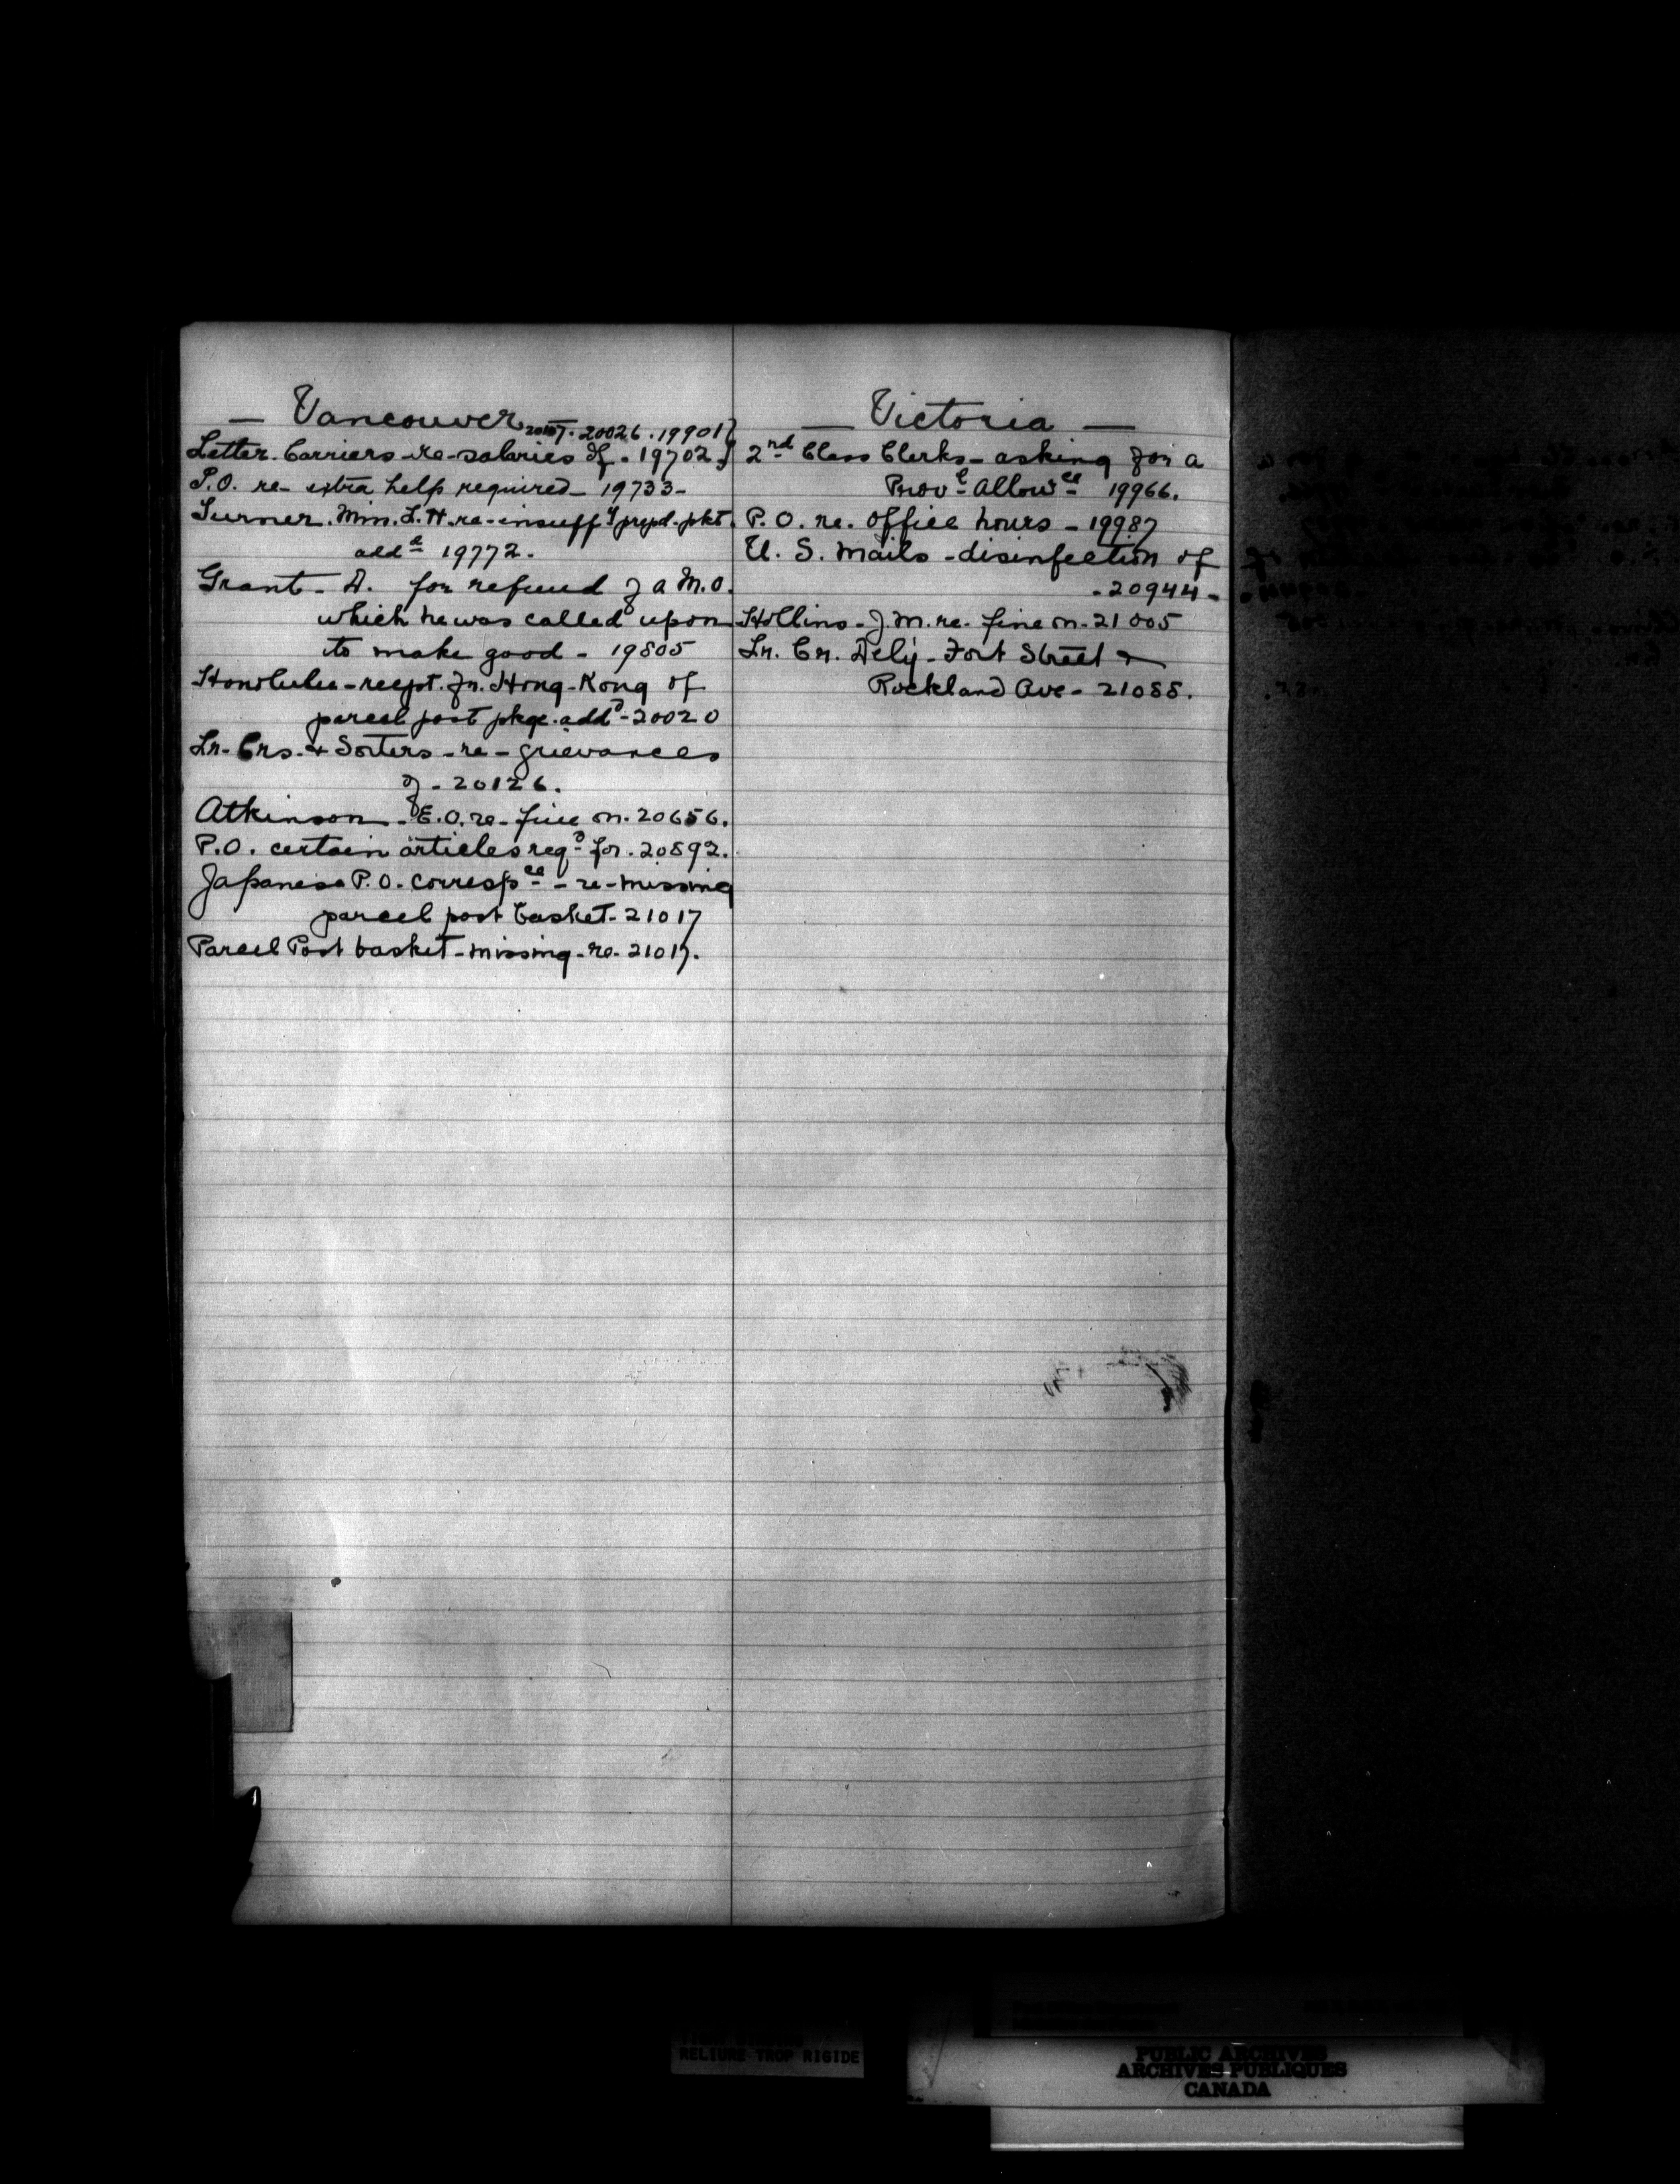 — Vancouver
20026. 19901}
Letter Carriers - re - salaries of - 19702.}
P.O. re - extra help required - 19733 -
Turner. Min. L. H. re - insuff'y prepd. pkt.
add^d 19772.
Grant - A. for refund of a M.O.
which he was called upon
to make good - 19805
Honolulu - recpt. fr. Hong-Kong of
parcel post pkge. add^d - 20020
Lr. Crs. & Sorters - re - grievances
of - 20126.
Atkinson - E. O. re - fine on. 20656.
P.O. certain articles req^d for. 20892.
Japanese P.O. corresp^ce - re - missing
parcel post basket - 21017
Parcel Post basket - missing - re - 21017.
— Victoria —
2nd Class Clerks - asking for a
Prov^l Allow^ce 19966.
P.O. re. office hours - 19987
U. S. Mails - disinfection of
- 20944 -
Hollins - J. M. re. fine on - 21005
Lr. Cr. Dely - Fort Street &
Rockland Ave - 21088.
RELIURE TROP RIGIDE
PUBLIC ARCHIVES
ARCHIVES PUBLIQUES
CANADA